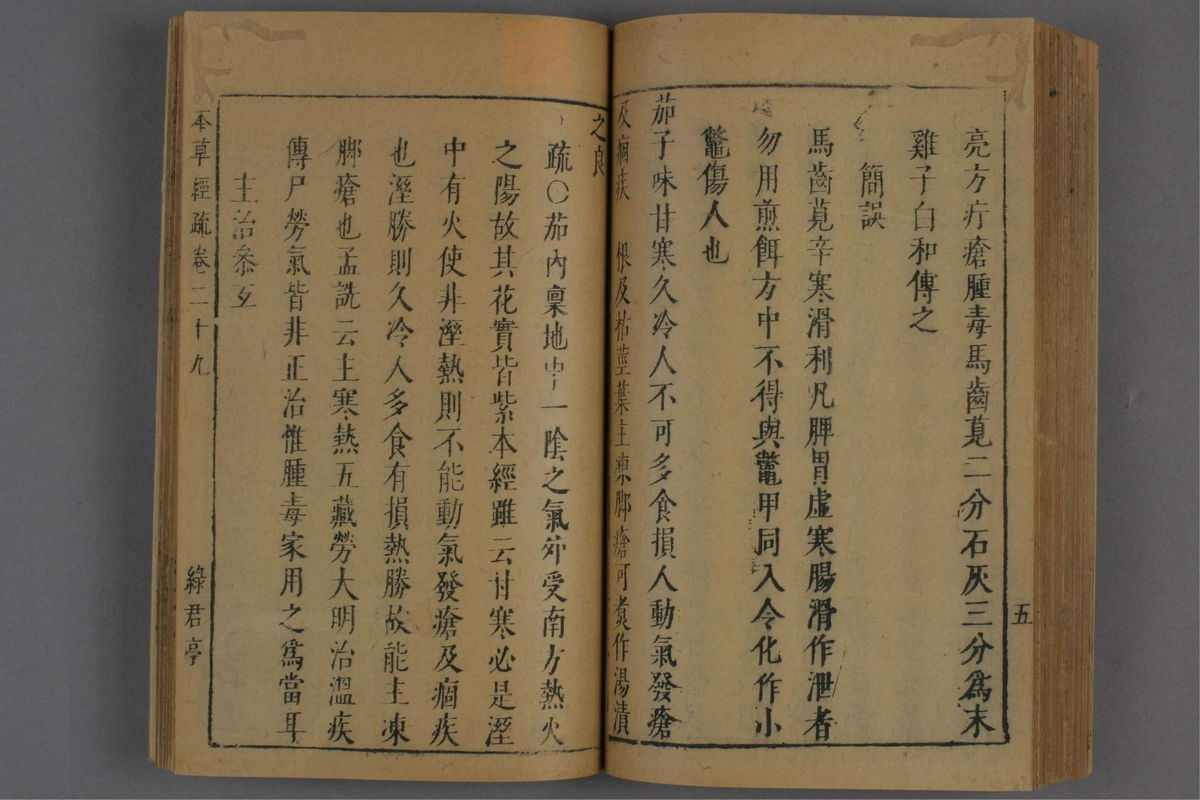 亮方疔瘡腫毒馬齒莧二分石灰三分爲末
雞子白和傅之
簡誤
馬齒莧辛寒滑利凡脾胃虛寒腸滑作泄者
勿用煎餌方中不得與鼈甲同入令化作小
鼈傷人也
茄子味甘寒久冷人不可多食損人動氣發瘡
及痼疾　根及枯莖葉主凍脚瘡可煑作湯漬
之良
疏〇茄內稟地中一陰之氣外受南方熱火
之陽故其花實皆紫本經雖云甘寒必是溼
中有火使非溼熱則不能動氣發瘡及痼疾
也溼勝則久冷人多食有損熱勝故能主凍
脚瘡也孟詵云主寒熱五藏勞大明治溫疾
傳尸勞氣皆非正治惟腫毒家用之爲當耳
主治參互
五
本草經疏卷二十九
綠君亭